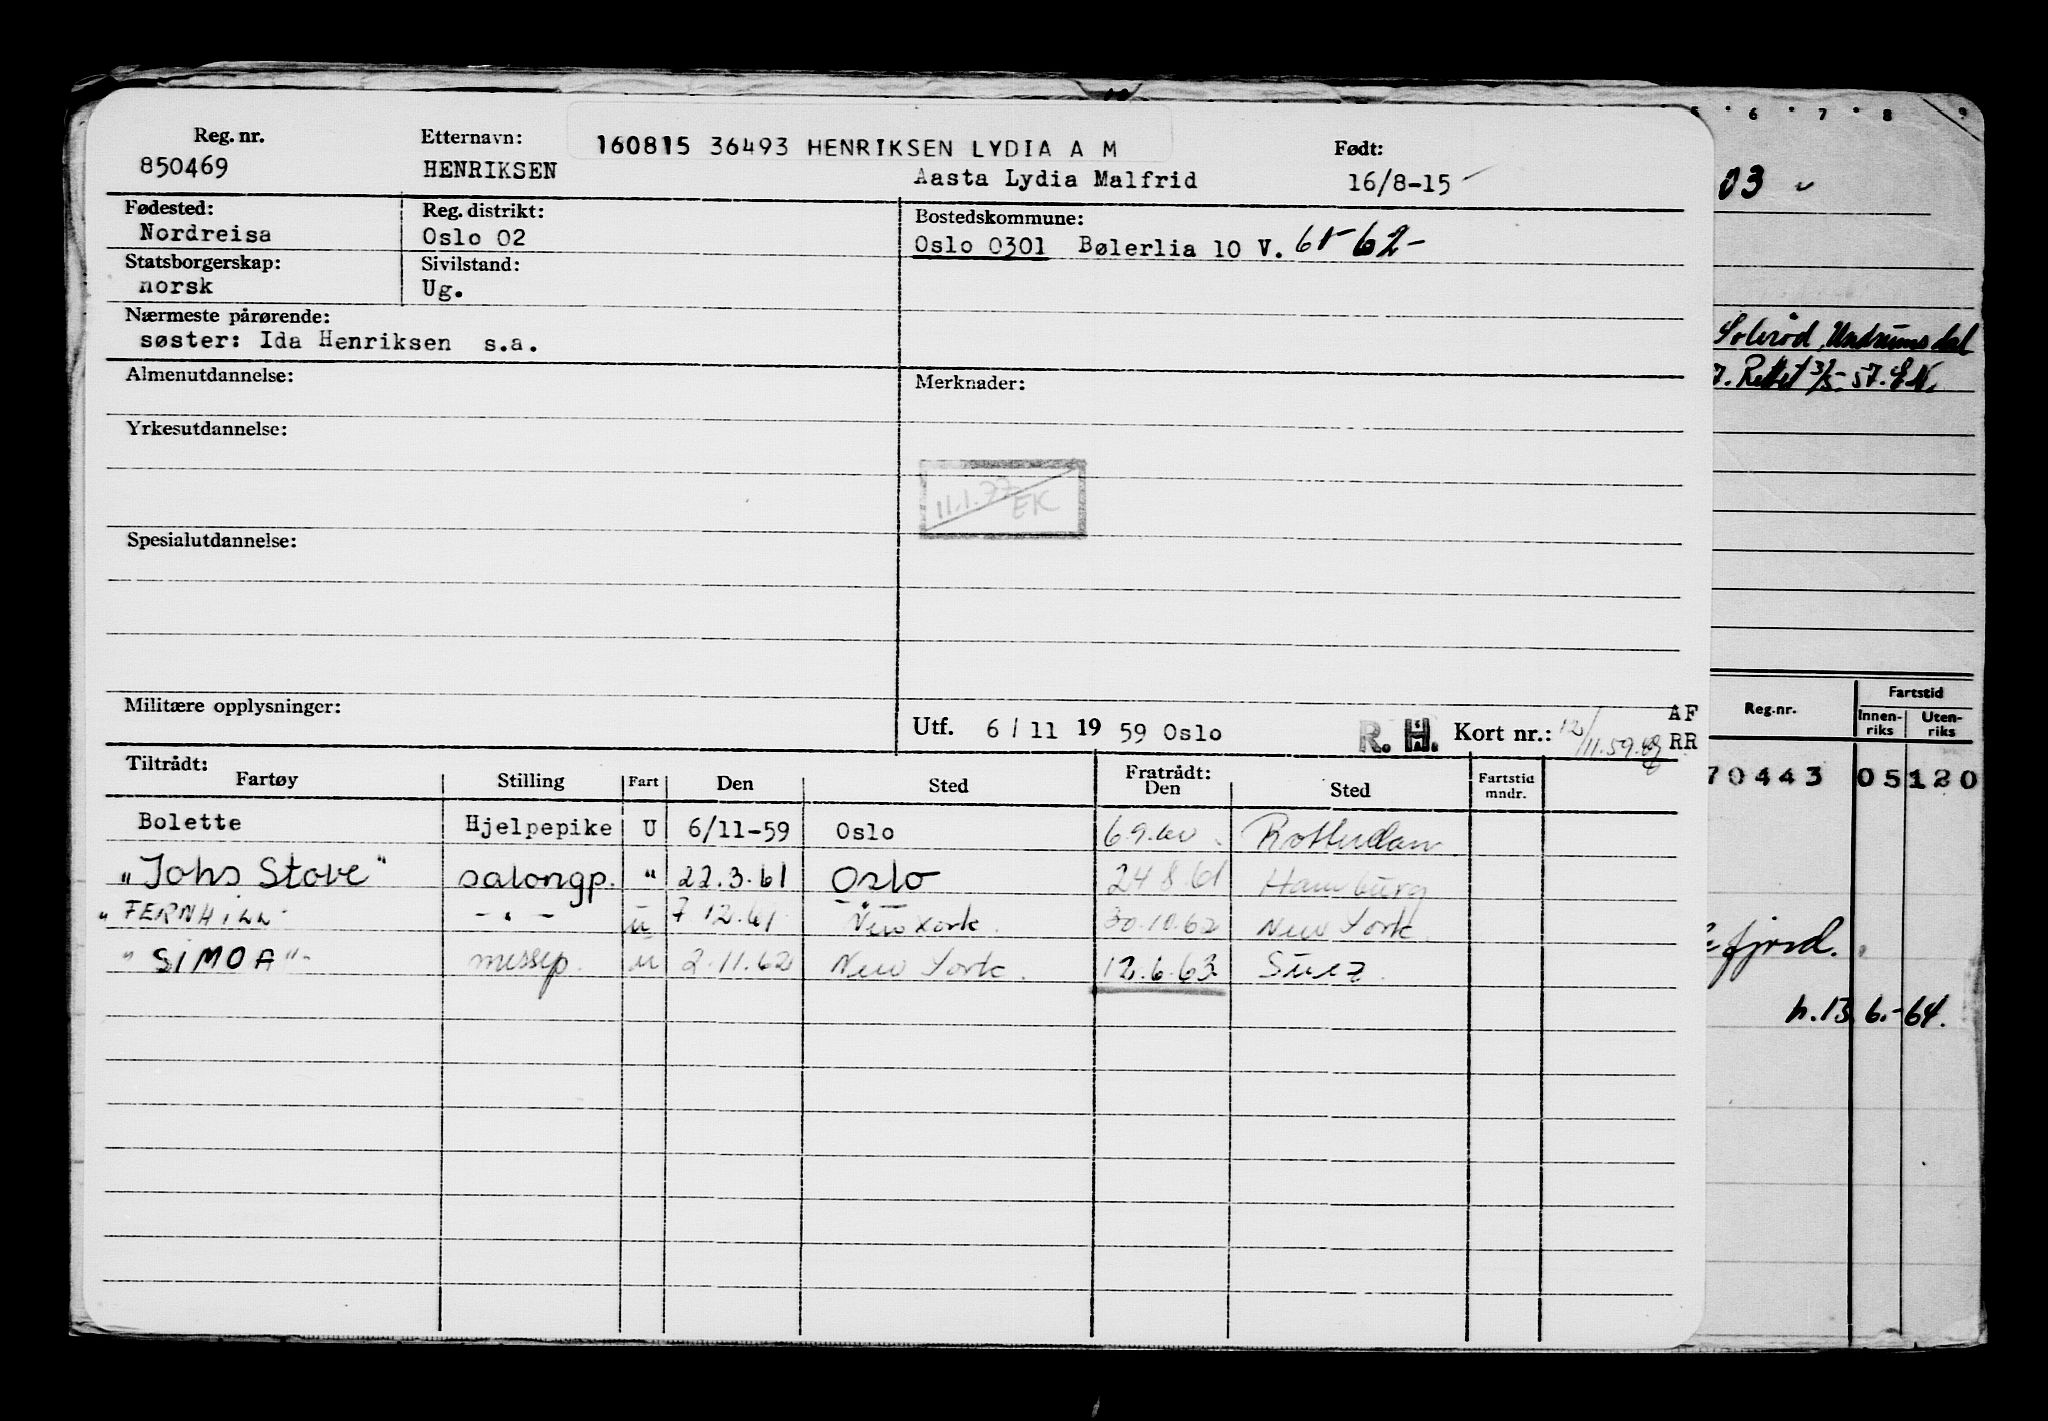 Reg. nr. Etternavn: 160815 36493 HENRIKSEN LYDIA A M Født:
850469 HENRIKSEN Aasta Lydia Malfrid 16/8-15
Fødested: Reg. distrikt: Bostedskommune:
Nordreisa Oslo 02 Oslo 0301 Bølerlia 10 V. 61- 62-
Statsborgerskap: Sivilstand:
norsk Ug.
Nærmeste pårørende:
søster: Ida Henriksen s.a.
Almenutdannelse: Merknader:
Yrkesutdannelse:
11.1.77 EK
Spesialutdannelse:
Militære opplysninger: Utf. 6/11 19 59 Oslo R. H. Kort nr.: 12/11.59. AF
RR
Tiltrådt: Fratrådt:
Fartøy Stilling Fart Den Sted Den Sted Fartstid mndr.
Bolette Hjelpepike U 6/11-59 Oslo 6.9.60. Rotterdam
"Johs Stove" salongp. " 22.3.61 Oslo 24.8.61 Hamburg
"FERNHILL" - " - u 7.12.61. New York. 30.10.62 New York
"SIMOA" messep. u 2.11.62 New York. 12.6.63 Suez.
5 6 7 8 9
03
Solerød, Undrumsdal
7. Rettet 3/5-57. E.N.
Reg.nr. Fartstid
Innen-riks Uten-riks
70443 05120
fjord.
h. 13.6.-64.